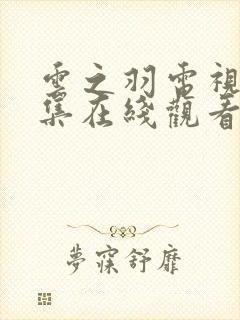 雲之羽電視
集在綫觀看
夢寐舒靡